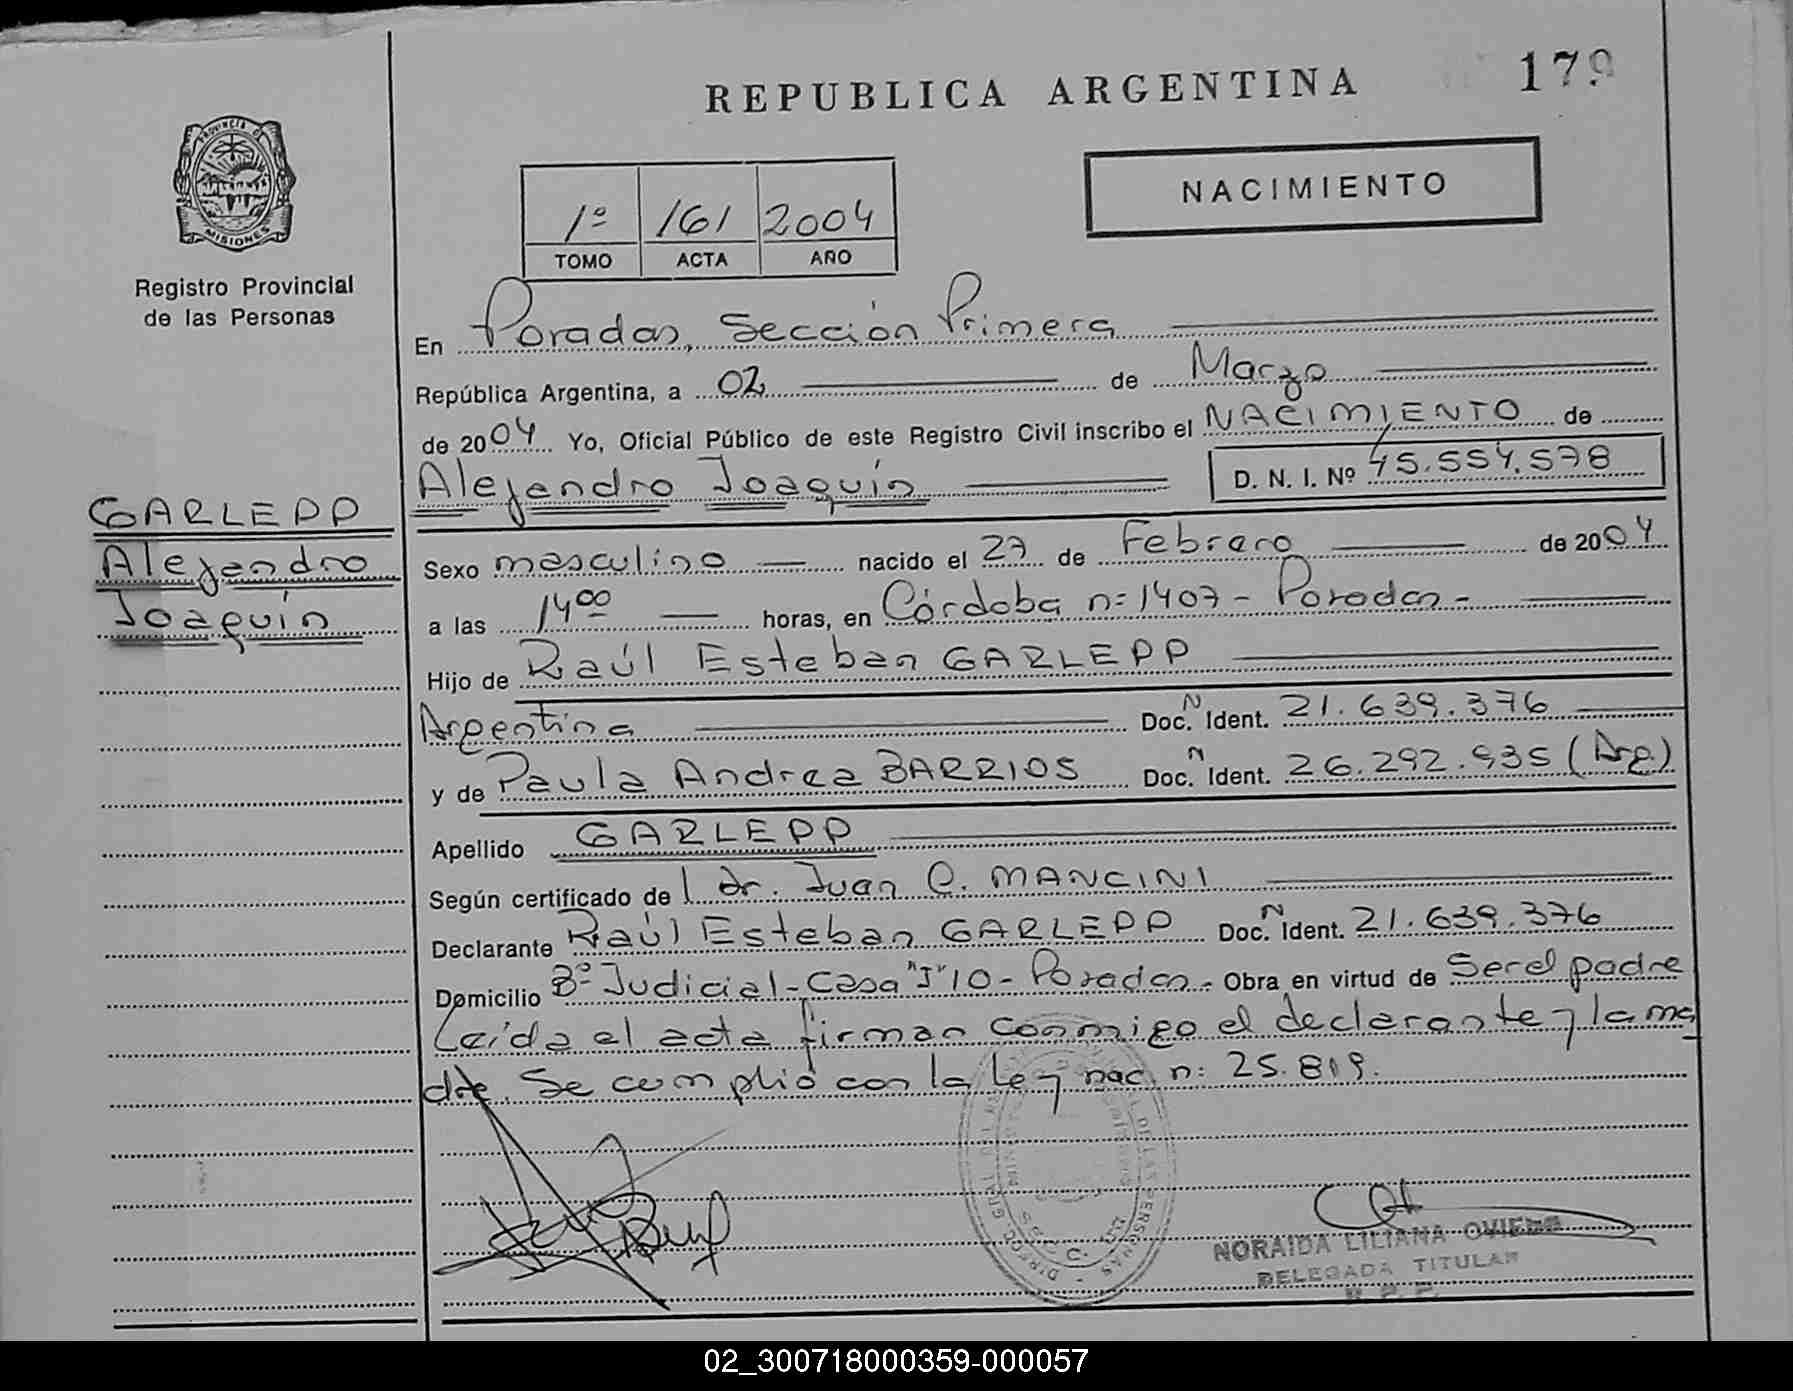 REPUBLICA ARGENTINA
179
PROVINCIA DE
MISIONES
Registro Provincial
de las Personas
1º 161 2004
TOMO ACTA AÑO
NACIMIENTO
En Posadas, Sección Primera
República Argentina, a 02 de Marzo
de 2004 Yo, Oficial Público de este Registro Civil inscribo el NACIMIENTO de
Alejandro Joaquín D. N. I. Nº 45.554.578
GARLEPP
Alejandro
Joaquín
Sexo masculino nacido el 27 de Febrero de 2004
a las 14ºº horas, en Córdoba n: 1407 - Posadas -
Hijo de Raúl Esteban GARLEPP
Argentina Doc. N Ident. 21.639.376
y de Paula Andrea BARRIOS Doc. N Ident. 26.292.935 (Arg.)
Apellido GARLEPP
Según certificado de l Dr. Juan C. MANCINI
Declarante Raúl Esteban GARLEPP Doc. N Ident. 21.639.376
Domicilio Bº Judicial - Casa "J" 10 - Posadas. Obra en virtud de Ser el padre
Leída el acta firman conmigo el declarante y la ma
dre. Se cumplió con la Ley nac. n: 25.819.
NORAIDA LILIANA OVIEDO
DELEGADA TITULAR
R. P. P.
02_300718000359-000057